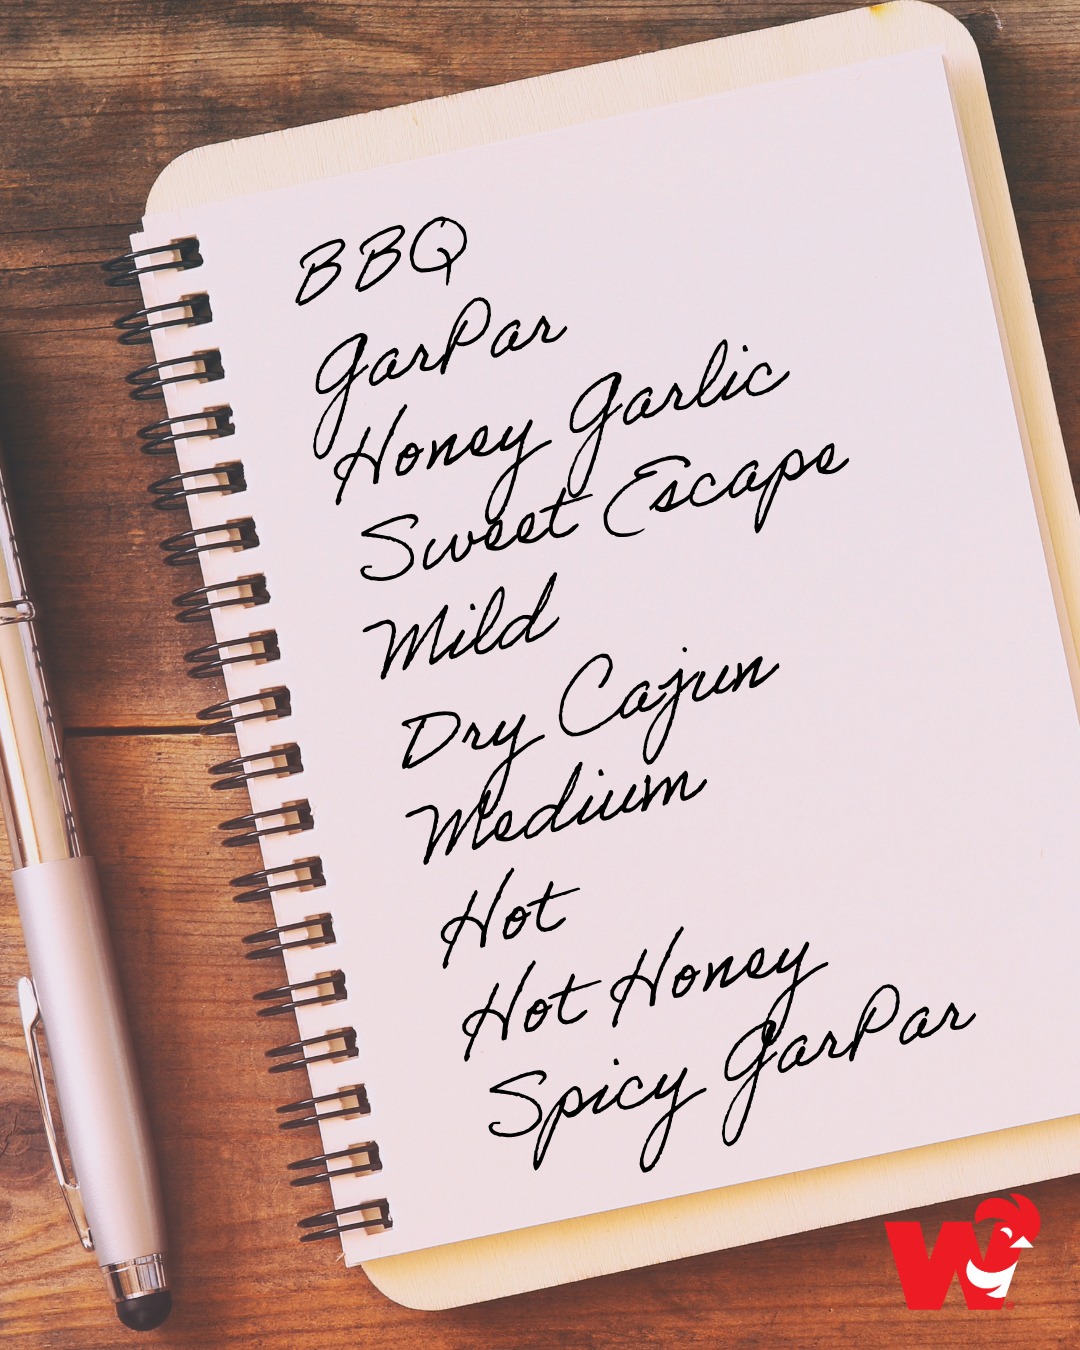 BBQ
GarPar
Honey Garlic
Sweet Escape
Mild
Dry Cajun
Medium
Hot
Hot Honey
Spicy GarPar
W